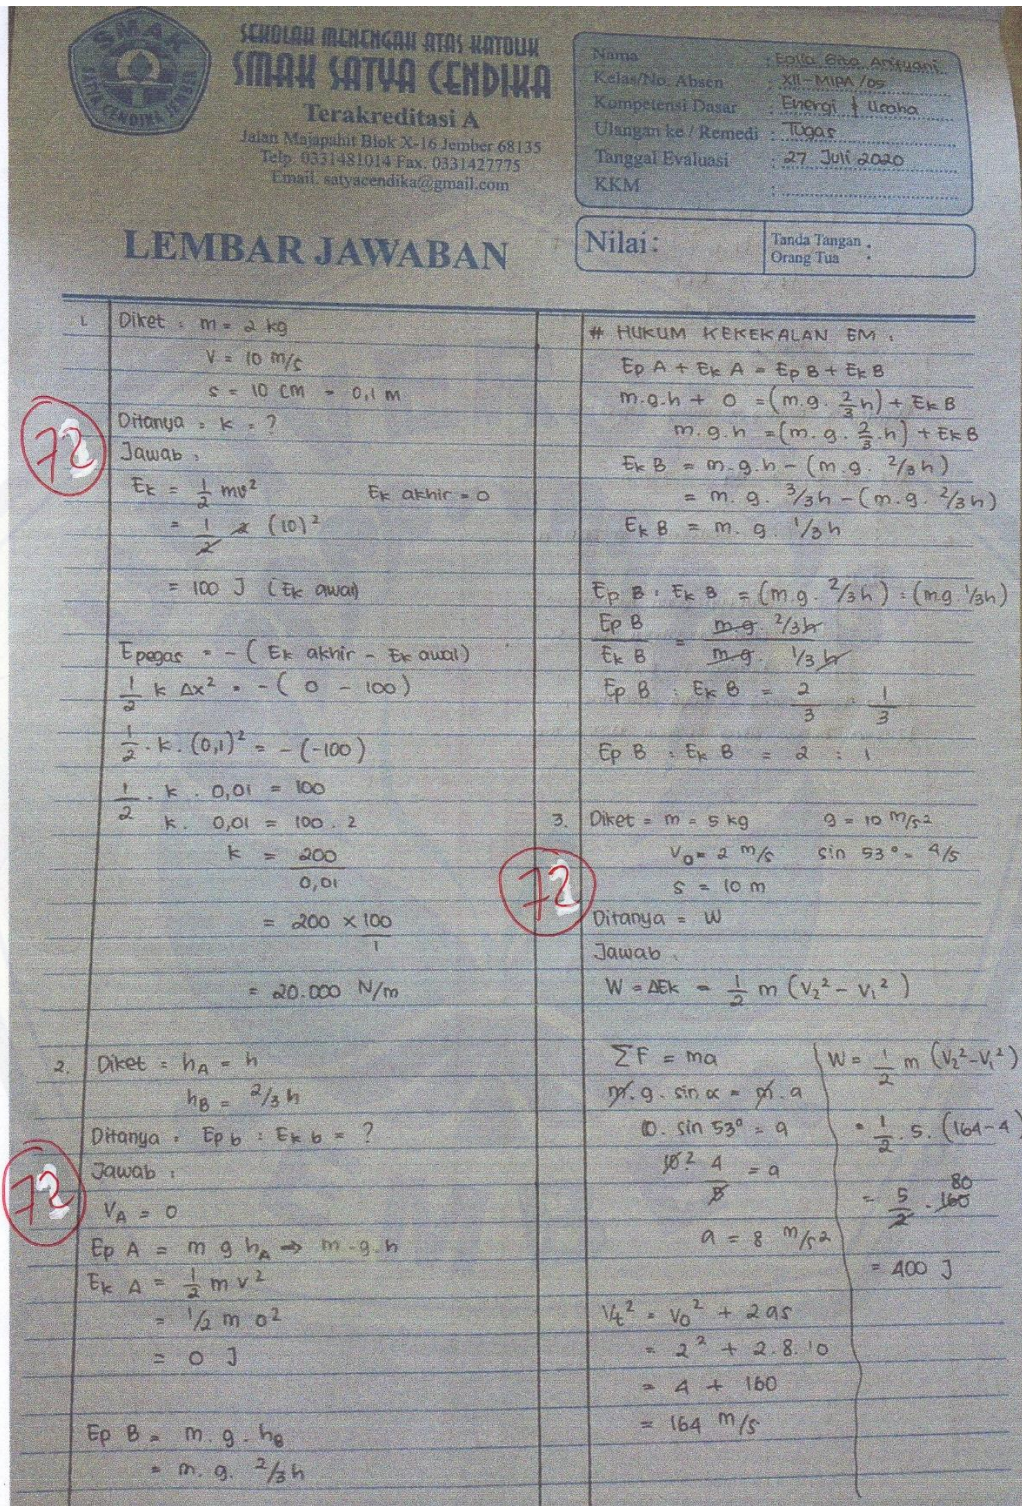 SMAK
SATYA CENDIKA JEMBER
SEKOLAH MENENGAH ATAS KATOLIK
SMAK SATYA CENDIKA
Terakreditasi A
Jalan Majapahit Blok X-16 Jember 68135
Telp. 0331481014 Fax. 0331427775
Email. satyacendika@gmail.com
Nama :
Kelas/No. Absen : XII-MIPA/05
Kompetensi Dasar : Energi & Usaha
Ulangan ke / Remedi : Tugas
Tanggal Evaluasi : 27 Juli 2020
KKM :
LEMBAR JAWABAN
Nilai :
Tanda Tangan :
Orang Tua
1. Diket : m = 2 kg
v = 10 m/s
s = 10 cm = 0,1 m
Ditanya = k = ?
72
Jawab :
Ek = 1/2 mv² Ek akhir = 0
= 1/2 2 (10)²
= 100 J (Ek awal)
Epegas = - (Ek akhir - Ek awal)
1/2 k Δx² = - (0 - 100)
1/2 . k . (0,1)² = - (-100)
1/2 . k . 0,01 = 100
k . 0,01 = 100 . 2
k = 200/0,01
= 200 × 100/1
= 20.000 N/m
2. Diket = hA = h
hB = 2/3 h
Ditanya = Ep b : Ek b = ?
Jawab :
72
VA = 0
Ep A = m g hA → m.g.h
Ek A = 1/2 m v²
= 1/2 m 0²
= 0 J
Ep B = m . g . hB
= m . g . 2/3 h
# HUKUM KEKEKALAN EM :
Ep A + Ek A = Ep B + Ek B
m.g.h + 0 = (m.g. 2/3 h) + Ek B
m.g.h = (m.g. 2/3 .h) + Ek B
Ek B = m.g.h - (m.g. 2/3 h)
= m. g. 3/3 h - (m.g. 2/3 h)
Ek B = m. g. 1/3 h
Ep B : Ek B = (m.g. 2/3 h) : (m.g 1/3 h)
Ep B/Ek B = m.g. 2/3 h/m.g. 1/3 h
Ep B : Ek B = 2/3 : 1/3
Ep B : Ek B = 2 : 1
3. Diket = m = 5 kg g = 10 m/s2
Vo = 2 m/s sin 53° = 4/5
s = 10 m
72
Ditanya = W
Jawab .
W = ΔEk = 1/2 m (V2² - V1²)
ΣF = ma
m . g . sin α = m . a
10 . sin 53° = a
10 2 4/5 = a
a = 8 m/s2
Vt² = Vo² + 2as
= 2² + 2.8.10
= 4 + 160
= 164 m/s
W = 1/2 m (V2²-V1²)
= 1/2 . 5 . (164-4)
= 5/2 . 160 80
= 400 J